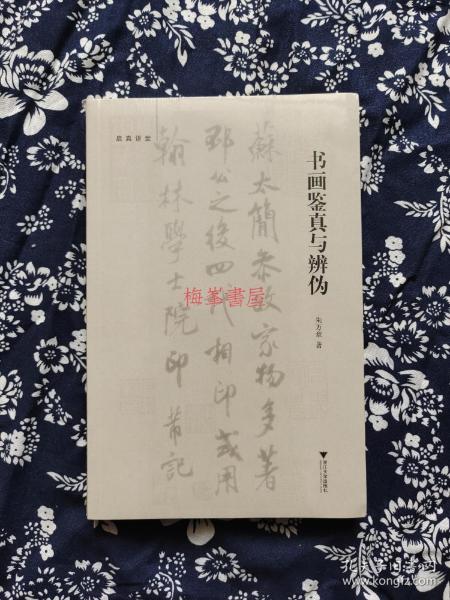 启真讲堂
书画鉴真与辨伪
朱万章 著
蘇太簡参政家物多著
邳公之後四代相印或用
翰林學士院印 芾記
梅峯書屋
浙江大学出版社
孔夫子旧书网
www.kongfz.com